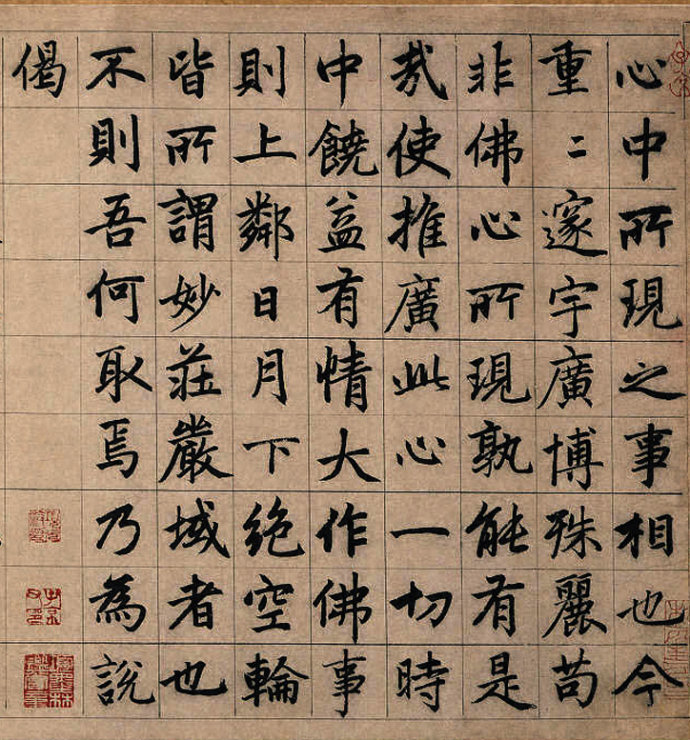 心中所現之事相也今
重二邃宇廣博殊麗苟
非佛心所現孰能有是
哉使推廣此心一切時
中饒益有情大作佛事
則上鄰日月下絶空輪
皆所謂妙莊嚴域者也
不則吾何取焉乃為説
偈